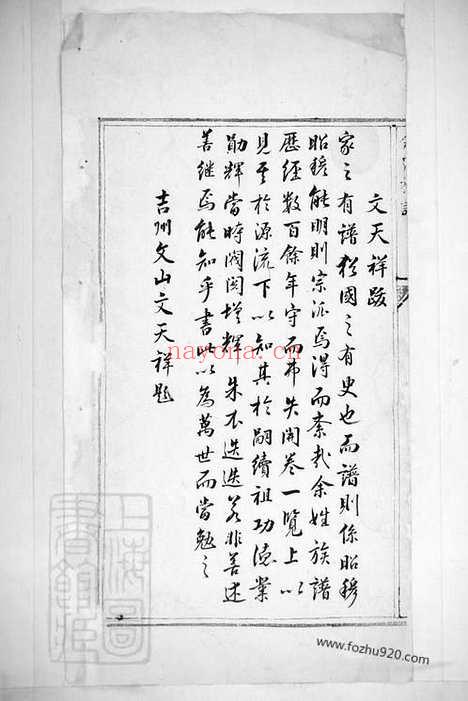 文天祥跋
家之有譜猶國之有史也而譜則係昭穆
昭穆能明則宗派焉得而紊哉余姓族譜
歷經數百餘年守而弗失開卷一覽上以
見其於源流下以知其於嗣續祖功德業
勛輝當時閥閱增輝朱衣迭迭若非善述
善繼焉能知乎書此以為萬世而當勉之
吉州文山文天祥題
上海圖書館藏
nayona.cn
www.fozhu920.com